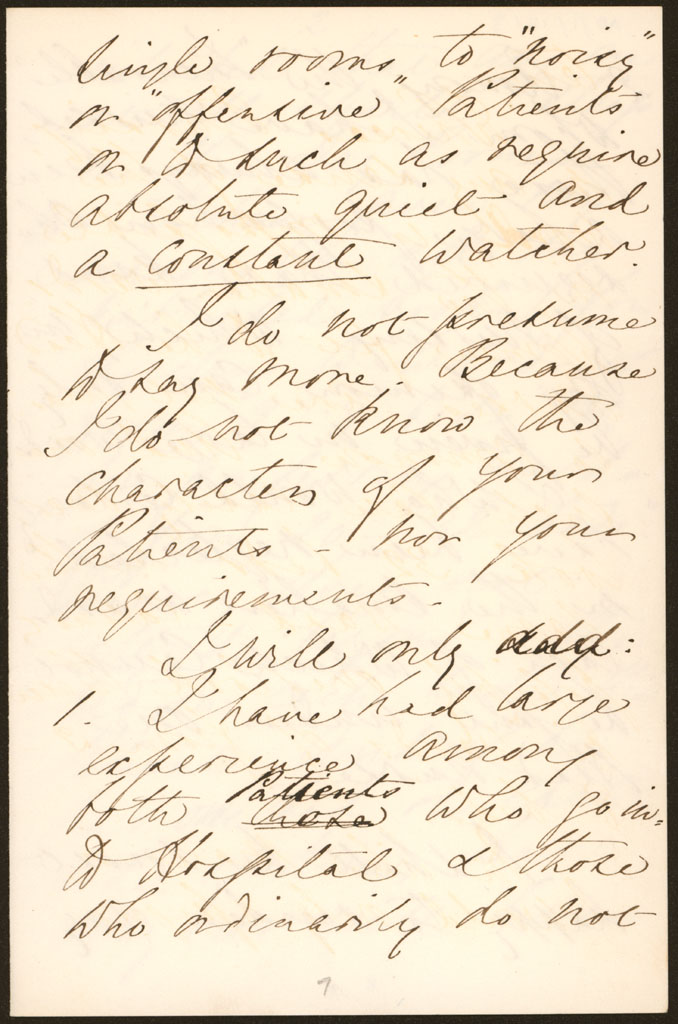 single rooms, to "noisy"
or "offensive" Patients
or to such as require
absolute quiet and
a constant watcher.
I do not presume
to say more. Because
I do not know the
characters of your
Patients - nor your
requirements.
I will only add:
1. I have had large
experience among
both Patients those who go in=
to Hospital & those
who ordinarily do not
7